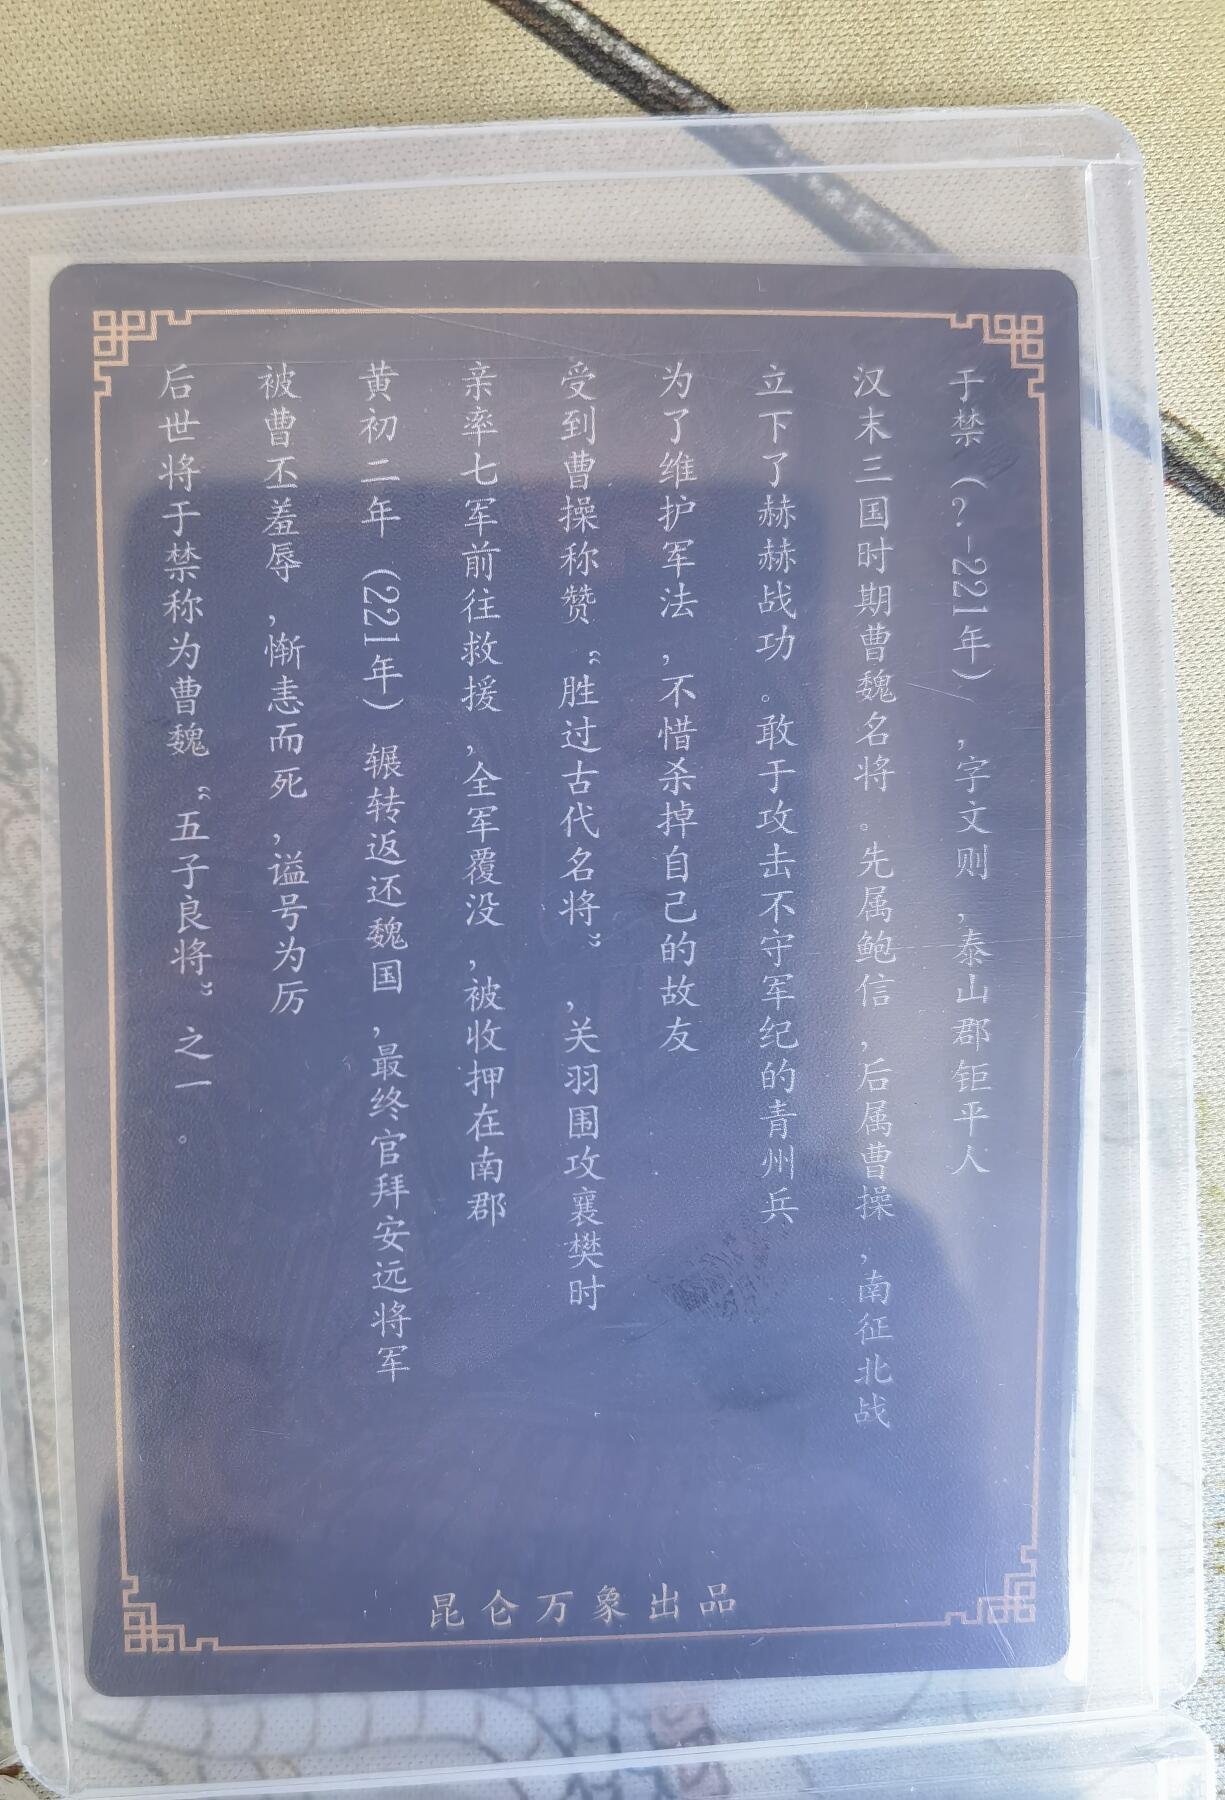 于禁（？-221年），字文则，泰山郡钜平人
汉末三国时期曹魏名将。先属鲍信，后属曹操，南征北战
立下了赫赫战功。敢于攻击不守军纪的青州兵
为了维护军法，不惜杀掉自己的故友
受到曹操称赞“胜过古代名将”，关羽围攻襄樊时
亲率七军前往救援，全军覆没，被收押在南郡
黄初二年（221年）辗转返还魏国，最终官拜安远将军
被曹丕羞辱，惭恚而死，谥号为厉
后世将于禁称为曹魏“五子良将”之一。
昆仑万象出品